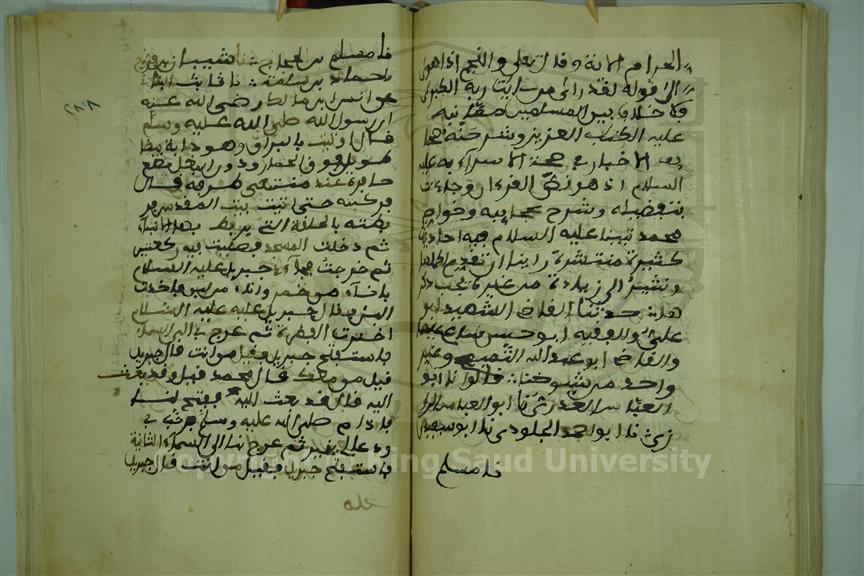 الحرام الاية وقال تعلى والنجم اذا هوى
الى قوله لقد راى من ايات ربه الكبرى
فلا خلاف بين المسلمين
عليه الكتاب العزيز وشرحته صحا
الاخبار في صحة الاسراء به عليه
السلام اذ هو نص القرءان وجاءت
بتفصيله وشرح عجائبه وخواص
محمد نبينا عليه السلام فيه احاديث
كثيرة منتشرة راينا ان نقدم اكملها
ونشير الى زيادة من غيره يجب ذكر
هاء حدثنا القاضي الشهيد ابو
علي والفقيه ابو
والقاضي ابو عبد الله التميمي وغير
واحد من شيوخنا قالوا نا ابو
العباس العذري نا ابو العباس الرا
زي نا ابو احمد الجلودي نا ابو سفيان
نا مسلم
نا مسلم بن الحجاج نا شيبان بن فروخ
نا حماد بن سلمة نا ثابت البنا
عن انس بن مالك رضي الله عنه
ان رسول الله صلى الله عليه وسلم
قال اوتيت بالبراق وهو دابة
طويل فوق الحمار ودون البغل يضع
حافره عند منتهى طرفه قال
فركبته حتى اتيت بيت المقدس فر
بطته بالحلقة التي يربط بها الانبياء
ثم دخلت المسجد فصليت فيه ركعتين
ثم خرجت فجاءني جبريل عليه السلام
باناء من خمر واناء من لبن فاخذت
اللبن فقال جبريل عليه السلام
اخترت الفطرة ثم عرج بي الى السماء
فاستفتح جبريل فقيل من انت قال جبريل
قيل من معك قال محمد قيل وقد بعث
اليه قال قد بعث اليه ففتح لنا
فاذا بادم صلى الله عليه وسلم فرحب بي
ودعا لي بخير ثم عرج بنا الى السماء الثانية
فاستفتح جبريل فقيل من انت قال جبريل
Copyright © King Saud University